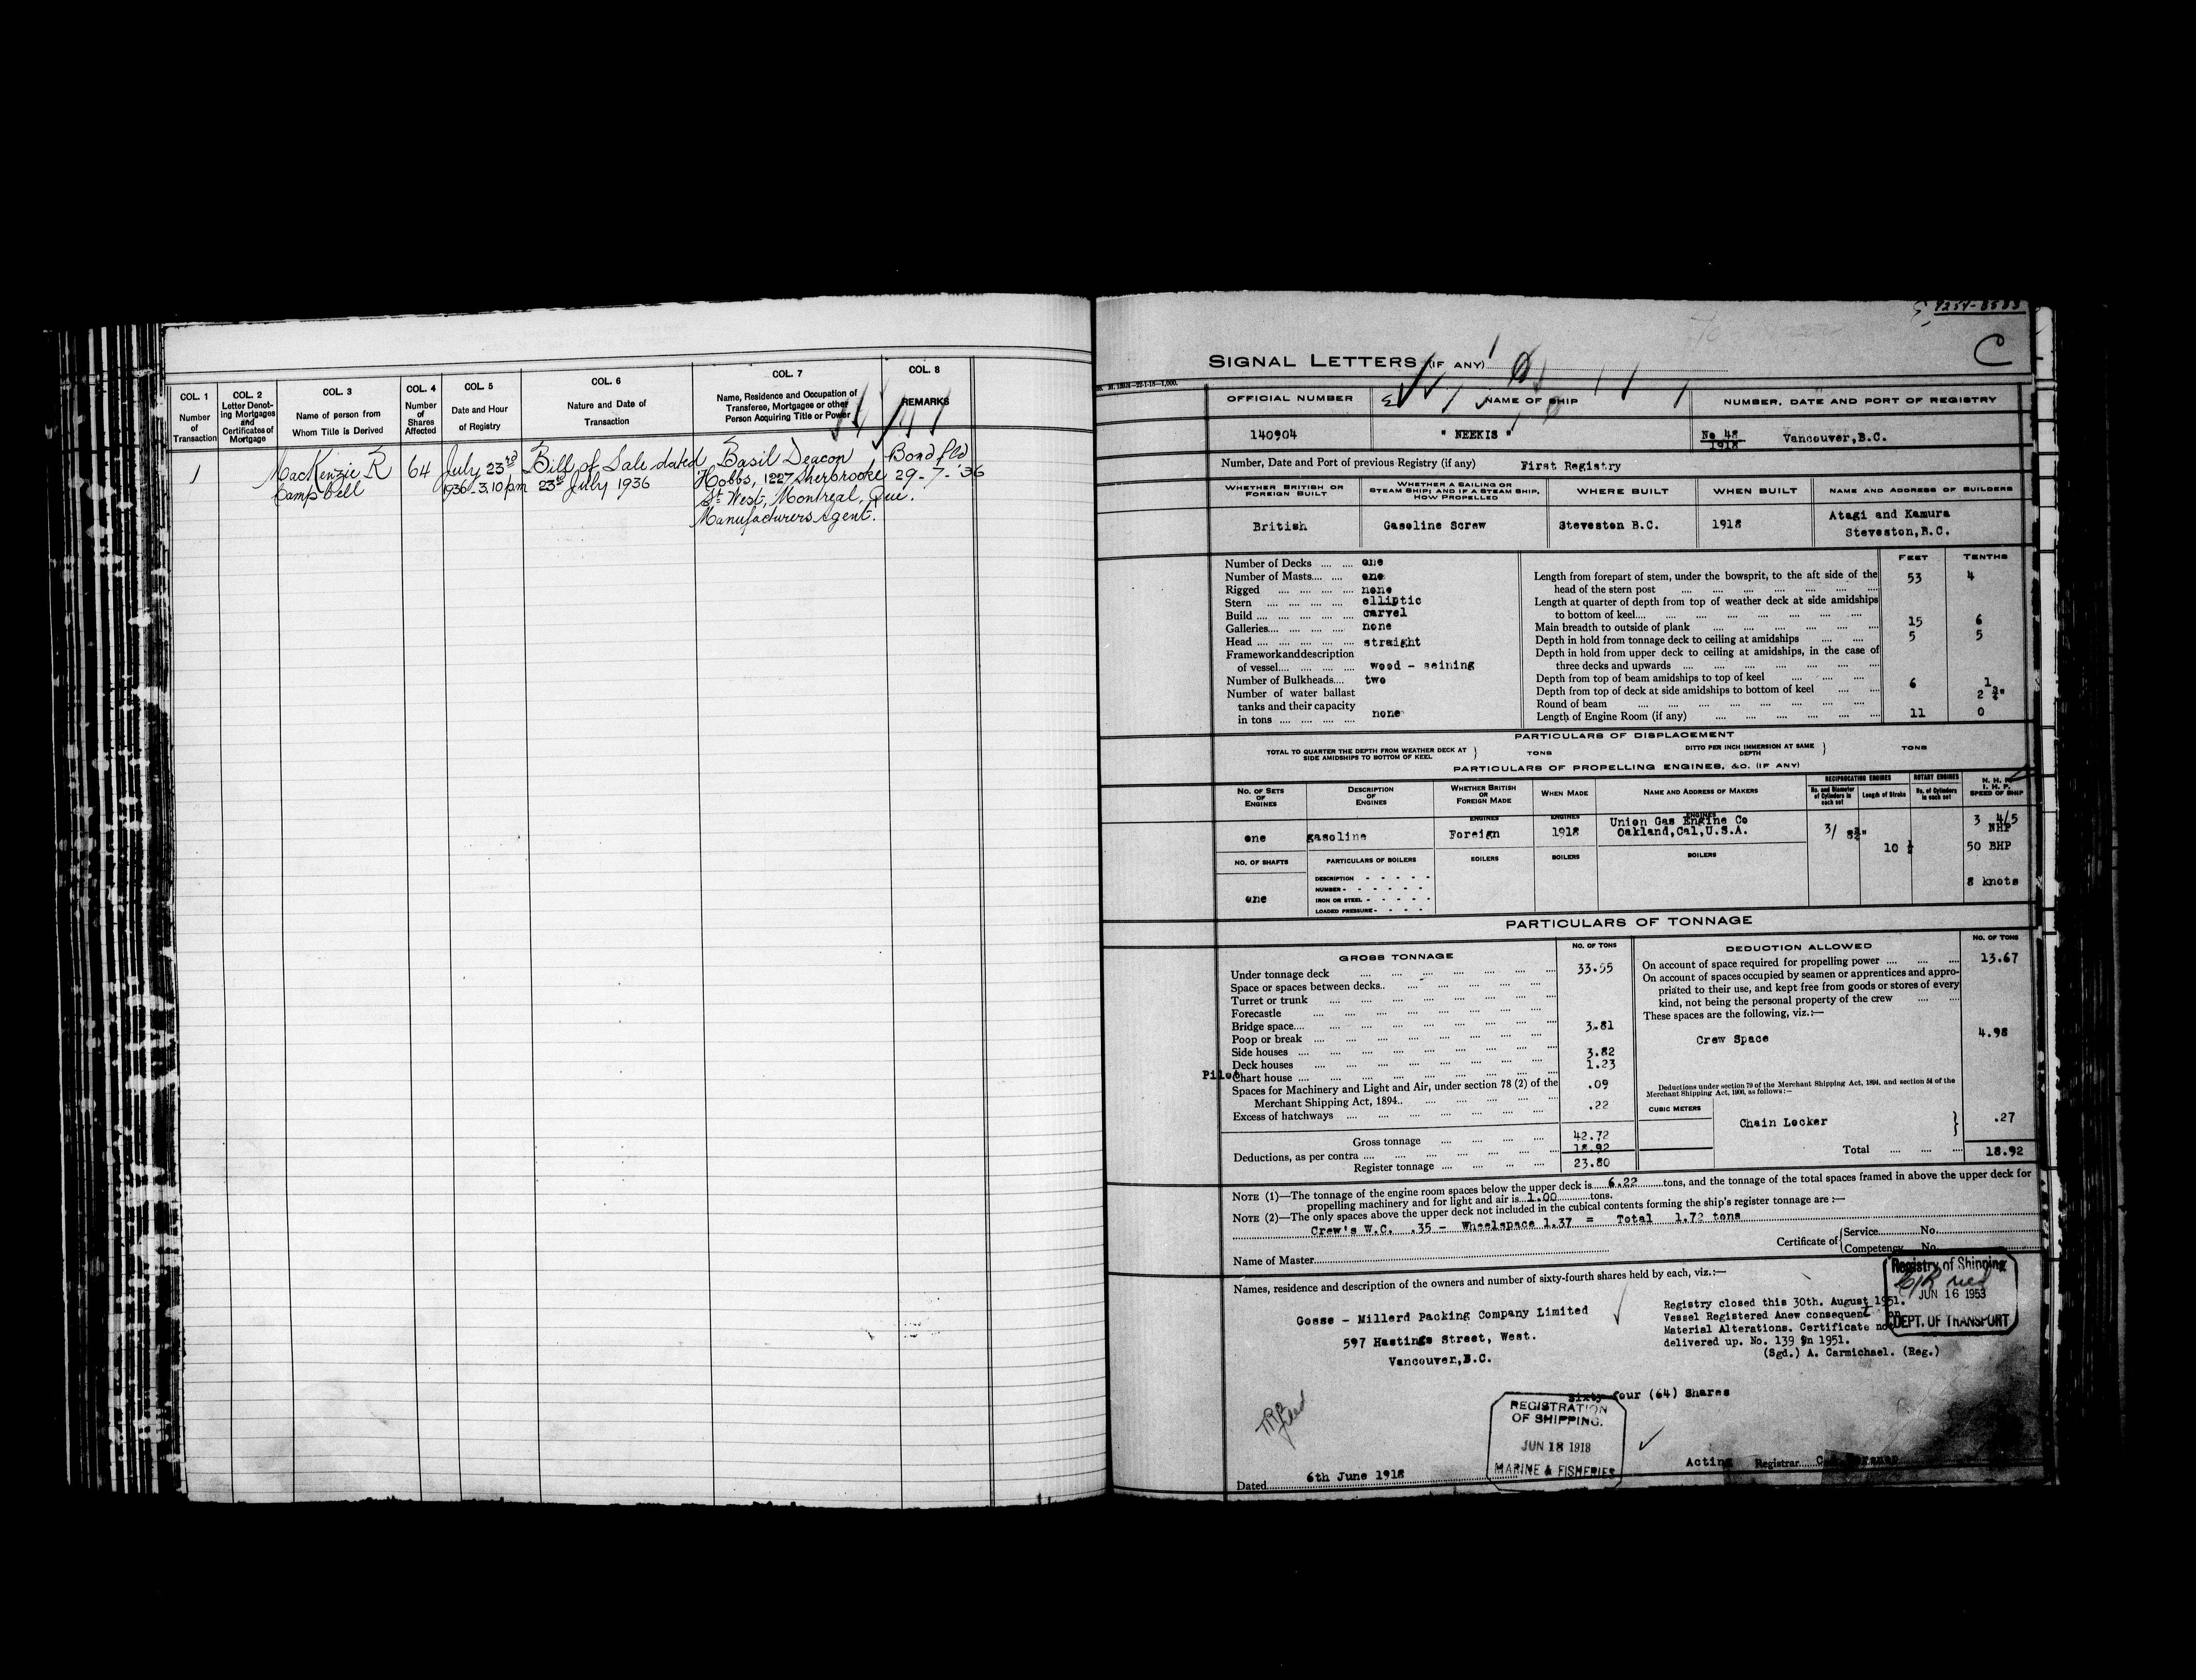 COL. 1
Number
of
Transaction
COL. 2
Letter Denot-
ing Mortgages
and
Certificates of
Mortgage
COL. 3
Name of person from
Whom Title is Derived
COL. 4
Number
of
Shares
Affected
COL. 5
Date and Hour
of Registry
COL. 6
Nature and Date of
Transaction
COL. 7
Name, Residence and Occupation of
Transferee, Mortgagee or other
Person Acquiring Title or Power
COL. 8
REMARKS
1
MacKenzie R
Campbell
64
July 23rd
1936 - 3.10 pm
Bill of Sale dated
23rd July 1936
Basil Deacon
Hobbs, 1227 Sherbrooke
St West, Montreal, Que.
Manufacturers Agent.
Bond fld
29-7-'36
C
SIGNAL LETTERS (IF ANY)
OFFICIAL NUMBER
NAME OF SHIP
NUMBER, DATE AND PORT OF REGISTRY
140904
" NEEKIS "
No 48
1918
Vancouver,B.C.
Number, Date and Port of previous Registry (if any)
First Registry
WHETHER BRITISH OR
FOREIGN BUILT
WHETHER A SAILING OR
STEAM SHIP; AND IF A STEAM SHIP,
HOW PROPELLED
WHERE BUILT
WHEN BUILT
NAME AND ADDRESS OF BUILDERS
British
Gasoline Screw
Steveston B.C.
1918
Atagi and Kamura
Steveston,B.C.
FEET
TENTHS
Number of Decks .... .... one
Number of Masts.... .... one
Rigged .... .... .... .... none
Stern .... .... .... .... elliptic
Build .... .... .... .... .... carvel
Galleries.... .... .... .... none
Head .... .... .... .... .... straight
Framework and description
of vessel.... .... .... .... wood - seining
Number of Bulkheads.... two
Number of water ballast
tanks and their capacity
in tons .... .... .... .... none
Length from forepart of stem, under the bowsprit, to the aft side of the
head of the stern post
53 4
Length at quarter of depth from top of weather deck at side amidships
to bottom of keel....
Main breadth to outside of plank 15 6
Depth in hold from tonnage deck to ceiling at amidships 5 5
Depth in hold from upper deck to ceiling at amidships, in the case of
three decks and upwards
Depth from top of beam amidships to top of keel
Depth from top of deck at side amidships to bottom of keel 6 1
Round of beam 2 ¾"
Length of Engine Room (if any) 11 0
PARTICULARS OF DISPLACEMENT
TOTAL TO QUARTER THE DEPTH FROM WEATHER DECK AT
SIDE AMIDSHIPS TO BOTTOM OF KEEL
TONS
DITTO PER INCH IMMERSION AT SAME
DEPTH
TONS
PARTICULARS OF PROPELLING ENGINES, &C. (IF ANY)
NO. OF SETS
OF
ENGINES
DESCRIPTION
OF
ENGINES
WHETHER BRITISH
OR
FOREIGN MADE
WHEN MADE
NAME AND ADDRESS OF MAKERS
RECIPROCATING ENGINES
ROTARY ENGINES
No. and Diameter
of Cylinders in
each set
Length of Stroke
No. of Cylinders
in each set
N. H. P.
I. H. P.
SPEED OF SHIP
ENGINES
ENGINES
ENGINES
one
gasoline
Foreign
1918
Union Gas Engine Co
Oakland,Cal,U.S.A.
3/
10 ½
3 4/5
NHP
50 BHP
8 knots
NO. OF SHAFTS
one
PARTICULARS OF BOILERS
BOILERS
BOILERS
BOILERS
DESCRIPTION - - - - -
NUMBER - - - - - -
IRON OR STEEL - - - - -
LOADED PRESSURE - - - -
PARTICULARS OF TONNAGE
GROSS TONNAGE
NO. OF TONS
Under tonnage deck 33.55
Space or spaces between decks..
Turret or trunk
Forecastle
Bridge space....
Poop or break 3.81
Side houses
Deck houses 3.82
Pilot
Chart house 1.23
Spaces for Machinery and Light and Air, under section 78 (2) of the
Merchant Shipping Act, 1894.. .09
Excess of hatchways .22
Gross tonnage 42.72
Deductions, as per contra 18.92
Register tonnage 23.80
DEDUCTION ALLOWED
NO. OF TONS
On account of space required for propelling power 13.67
On account of spaces occupied by seamen or apprentices and appro-
priated to their use, and kept free from goods or stores of every
kind, not being the personal property of the crew
These spaces are the following, viz.:—
Crew Space 4.98
Deductions under section 79 of the Merchant Shipping Act, 1894, and section 54 of the
Merchant Shipping Act, 1906, as follows:—
CUBIC METERS
Chain Locker .27
Total 18.92
NOTE (1)—The tonnage of the engine room spaces below the upper deck is 6.22 tons, and the tonnage of the total spaces framed in above the upper deck for
propelling machinery and for light and air is 1.00 tons.
NOTE (2)—The only spaces above the upper deck not included in the cubical contents forming the ship's register tonnage are :—
Crew's W.C. .35 - Wheelspace 1.37 = Total 1.72 tons
Name of Master
Certificate of
Service No.
Competency No.
Names, residence and description of the owners and number of sixty-fourth shares held by each, viz.:—
Gosse - Millerd Packing Company Limited
597 Hastings Street, West.
Vancouver,B.C.
Registry closed this 30th. August 1951.
Vessel Registered Anew consequent on
Material Alterations. Certificate not
delivered up. No. 139 in 1951.
(Sgd.) A. Carmichael. (Reg.)
Registry of Shipping
JUN 16 1953
DEPT. OF TRANSPORT
Sixty four (64) Shares
REGISTRATION
OF SHIPPING.
JUN 18 1918
MARINE & FISHERIES
Dated 6th June 1918
Acting Registrar